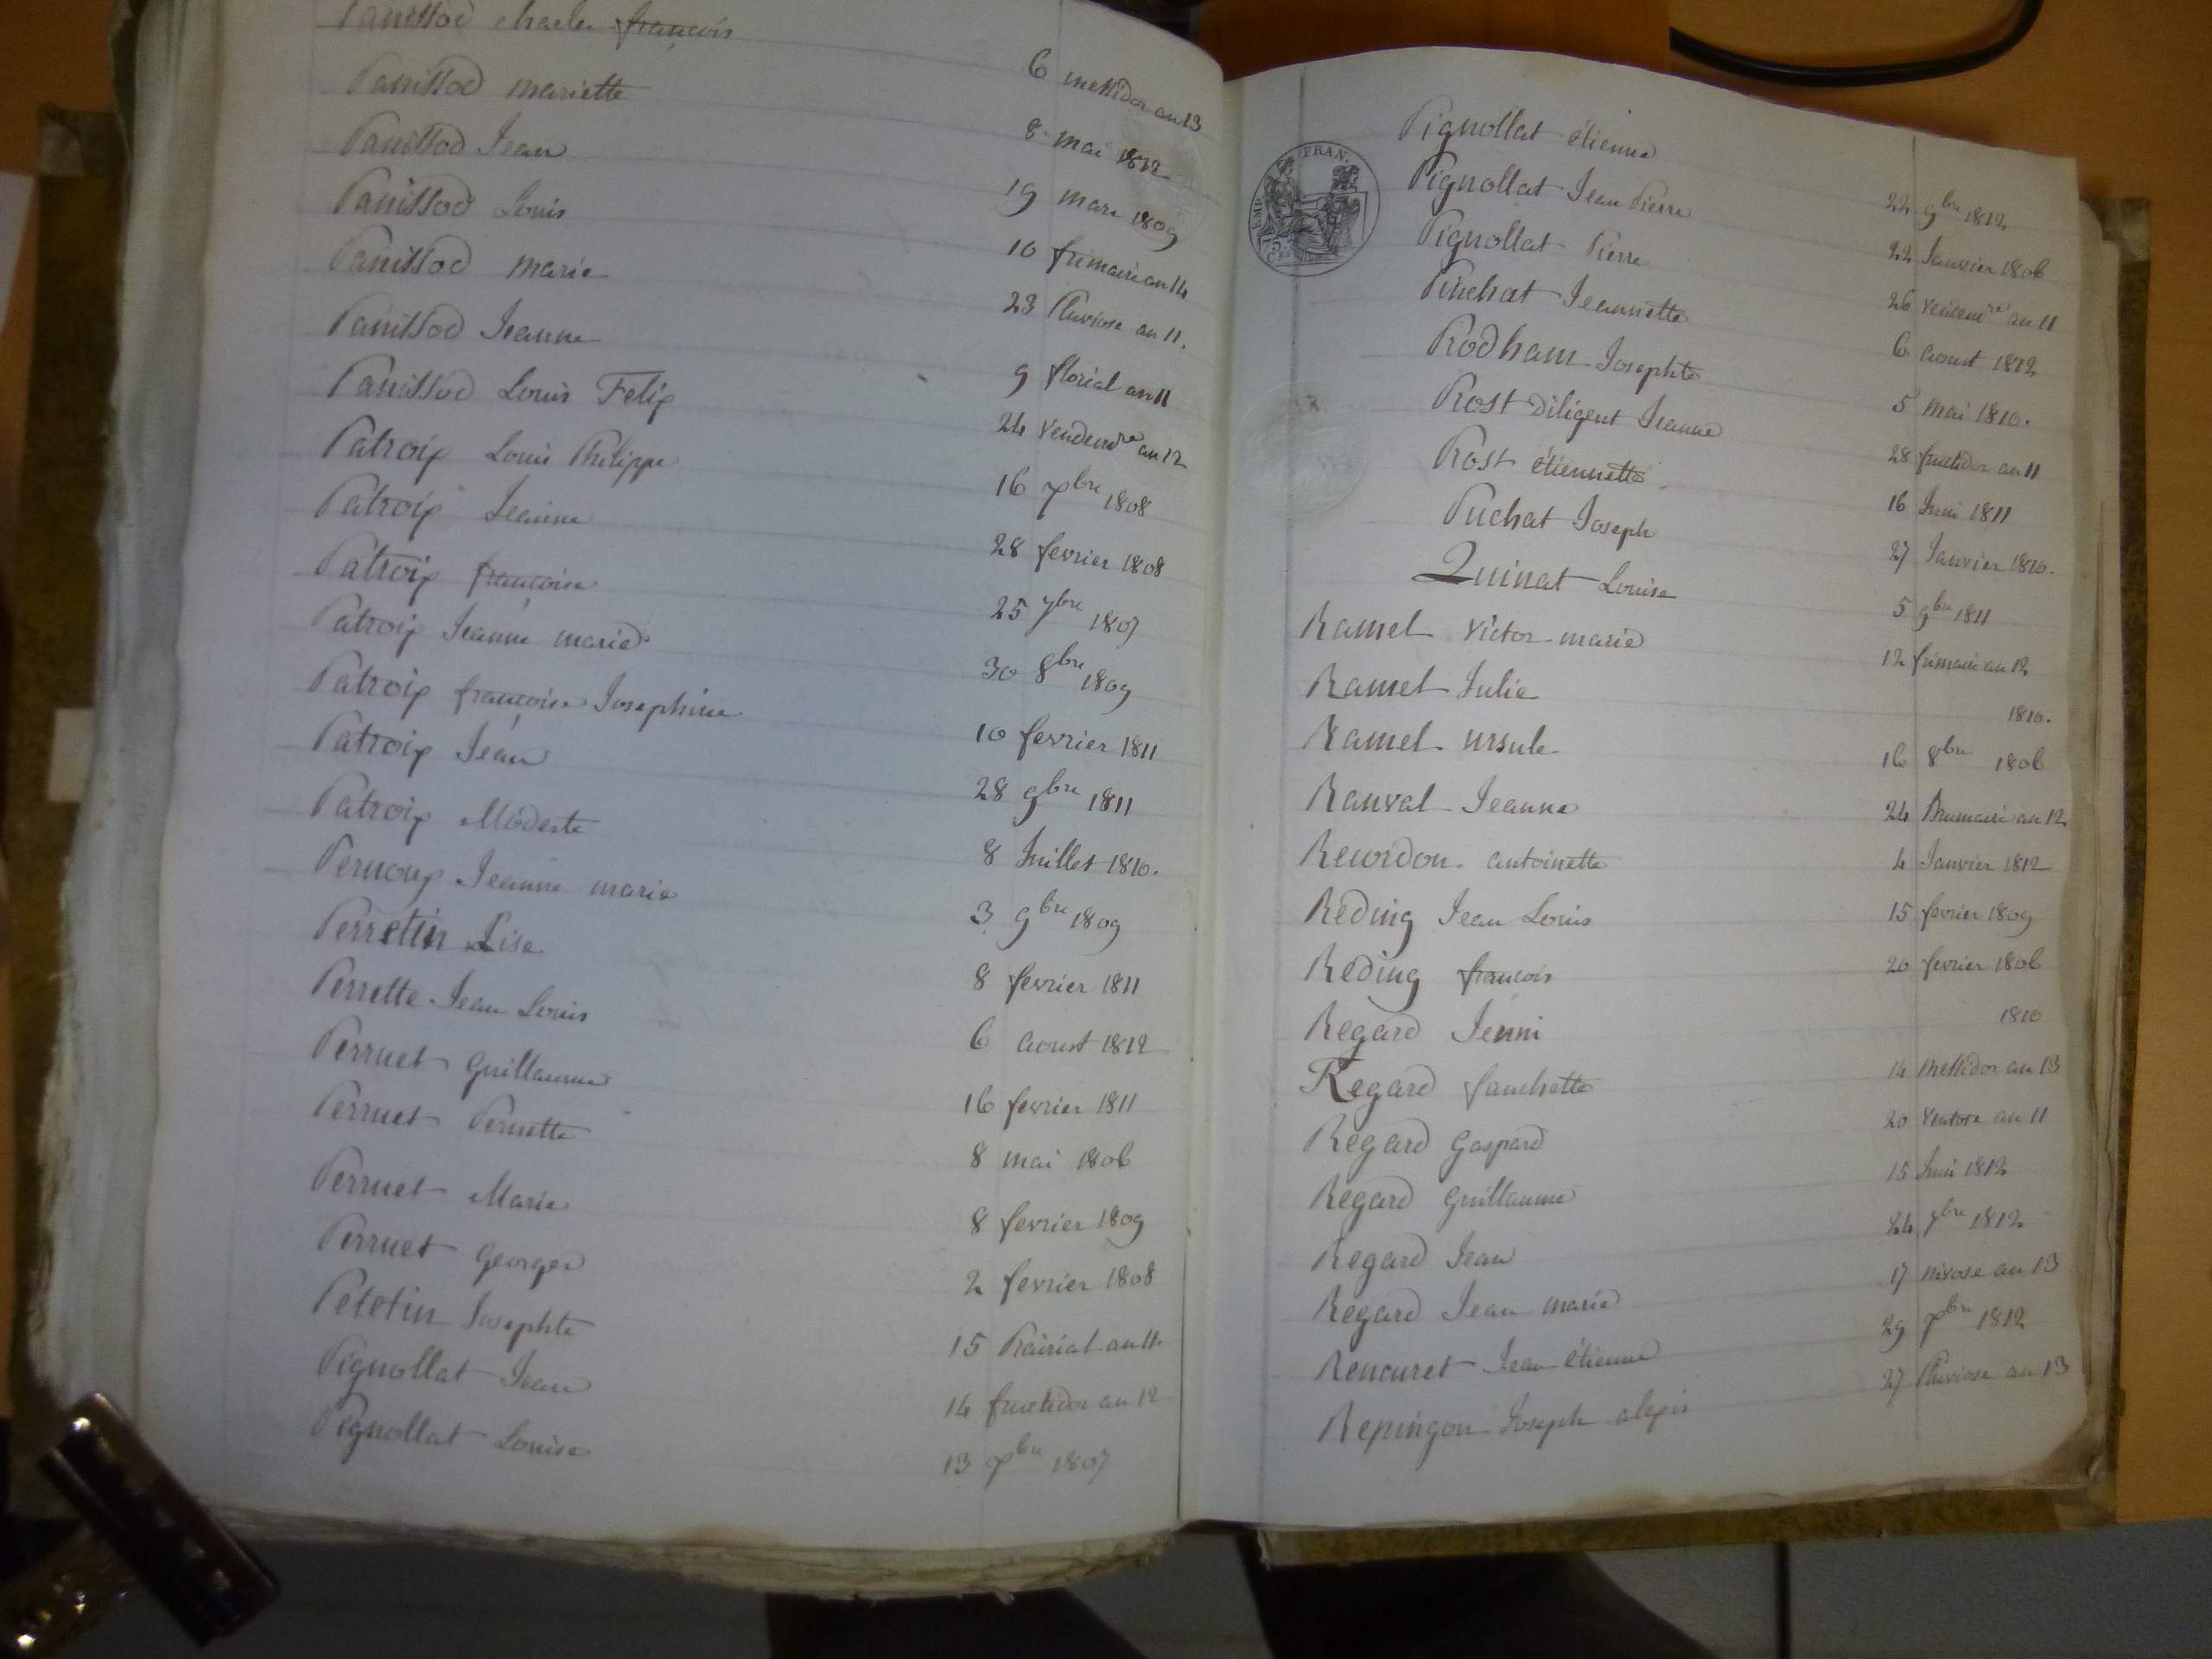 Panissod charles françois 6 messidor an 13
Panissod mariette 8 mai 1812
Panissod Jean 19 mars 1809
Panissod Louis 10 frimaire an 14
Panissod marie 23 Pluviose an 11.
Panissod Jeanne 9 floréal an 11
Panissod Louis Felix 24 vendemre an 12
Patroix Louis Philippe 16 xbre 1808
Patroix Jeanne 28 fevrier 1808
Patroix françoise 25 7bre 1807
Patroix Jeanne marie 30 8bre 1809
Patroix françoise Josephine 10 fevrier 1811
Patroix Jean 28 9bre 1811
Patroix Modeste 8 Juillet 1810.
Pernoux Jeanne marie 3 9bre 1809
Perretin Lise 8 fevrier 1811
Perrette Jean Louis 6 aoust 1812
Perruet Guillaume 16 fevrier 1811
Perruet Pernette 8 mai 1806
Perruet Marie 8 fevrier 1809
Perruet Georges 2 fevrier 1808
Petetin Josephte 15 Prairial an 11.
Pignollat Jean 14 fructidor an 12
Pignollat Louise 13 xbre 1807
EMP. FRAN.
Pignollat étienne 22 9bre 1812
Pignollat Jean Pierre 22 Janvier 1806
Pignollat Pierre 26 vendemre an 11
Pinchat Jeannette 6 aoust 1812
Prodham Josephte 5 mai 1810.
Prost Diligent Jeanne 28 fructidor an 11
Prost étiennette 16 Juin 1811
Puchat Joseph 27 Janvier 1810.
Quinat Louise 5 9bre 1811
Ramel victor marie 12 frimaire an 12
Ramel Julie 1810.
Ramel ursule 16 8bre 1806
Ranval Jeanne 24 Brumaire an 12
Reverdon antoinette 4 Janvier 1812
Reding Jean Louis 15 fevrier 1809
Reding françois 20 fevrier 1806
Regard Jenni 1810
Regard fanchette 14 messidor an 13
Regard Gaspard 20 ventose an 11
Regard Guillaume 15 Juin 1812
Regard Jean 24 7bre 1812
Regard Jean marie 17 nivose an 13
Rencuret Jean étienne 29 xbre 1812
Repingon Joseph alexis 27 Pluviose an 13